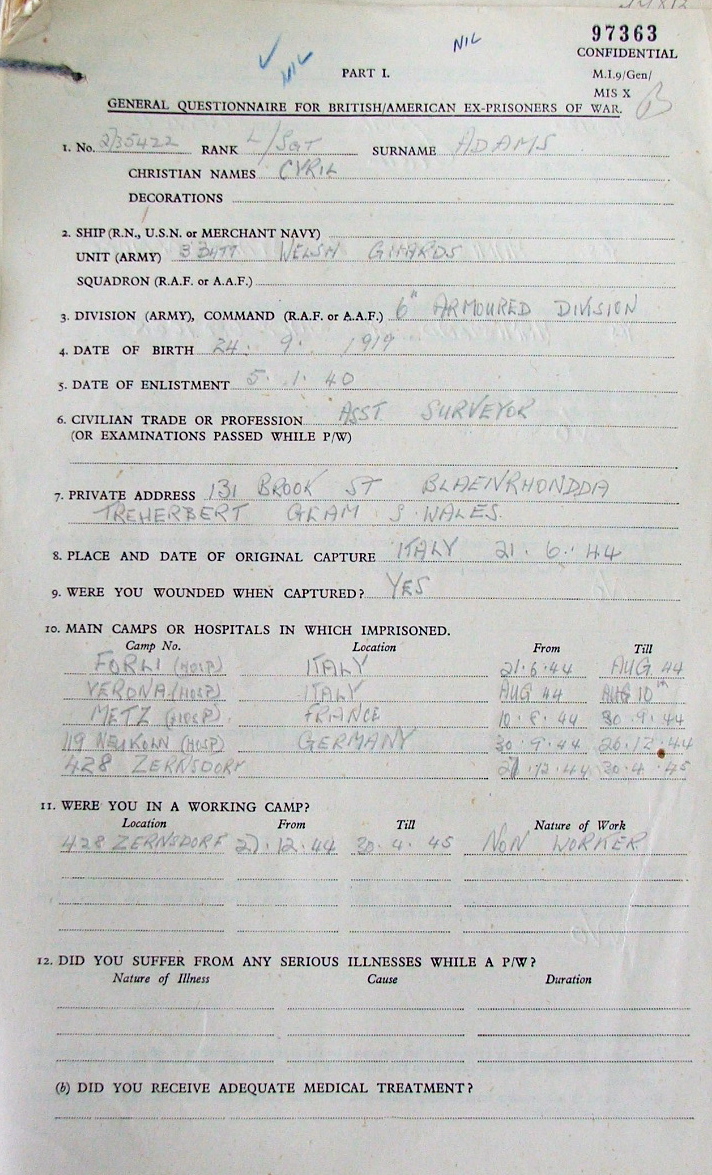 97363
CONFIDENTIAL
NIL
NIL
PART I.
M.I.9/Gen/
MIS X
GENERAL QUESTIONNAIRE FOR BRITISH/AMERICAN EX-PRISONERS OF WAR.
1. No. 2735422 RANK L/SGT SURNAME ADAMS
CHRISTIAN NAMES CYRIL
DECORATIONS
2. SHIP (R.N., U.S.N. or MERCHANT NAVY)
UNIT (ARMY) 3 BATT WELSH GUARDS
SQUADRON (R.A.F. or A.A.F.)
3. DIVISION (ARMY), COMMAND (R.A.F. or A.A.F.) 6" ARMOURED DIVISION
4. DATE OF BIRTH 24. 9. 1919
5. DATE OF ENLISTMENT 5. 1. 40
6. CIVILIAN TRADE OR PROFESSION ASST SURVEYOR
(OR EXAMINATIONS PASSED WHILE P/W)
7. PRIVATE ADDRESS 131 BROOK ST BLAENRHONDDA
TREHERBERT GLAM S. WALES.
8. PLACE AND DATE OF ORIGINAL CAPTURE ITALY 21. 6. 44
9. WERE YOU WOUNDED WHEN CAPTURED? YES
10. MAIN CAMPS OR HOSPITALS IN WHICH IMPRISONED.
Camp No. Location From Till
FORLI (HOSP) ITALY 21.6.44 AUG 44
VERONA (HOSP) ITALY AUG 44 AUG 10th
METZ (HOSP). FRANCE 10.8.44 30.9.44
119 NEUKOLN (HOSP) GERMANY 30.9.44 26.12.44
428 ZERNSDORF 27.12.44 30.4.45
11. WERE YOU IN A WORKING CAMP?
Location From Till Nature of Work
428 ZERNSDORF 27.12.44 30.4.45 NON WORKER
12. DID YOU SUFFER FROM ANY SERIOUS ILLNESSES WHILE A P/W?
Nature of Illness Cause Duration
(b) DID YOU RECEIVE ADEQUATE MEDICAL TREATMENT?